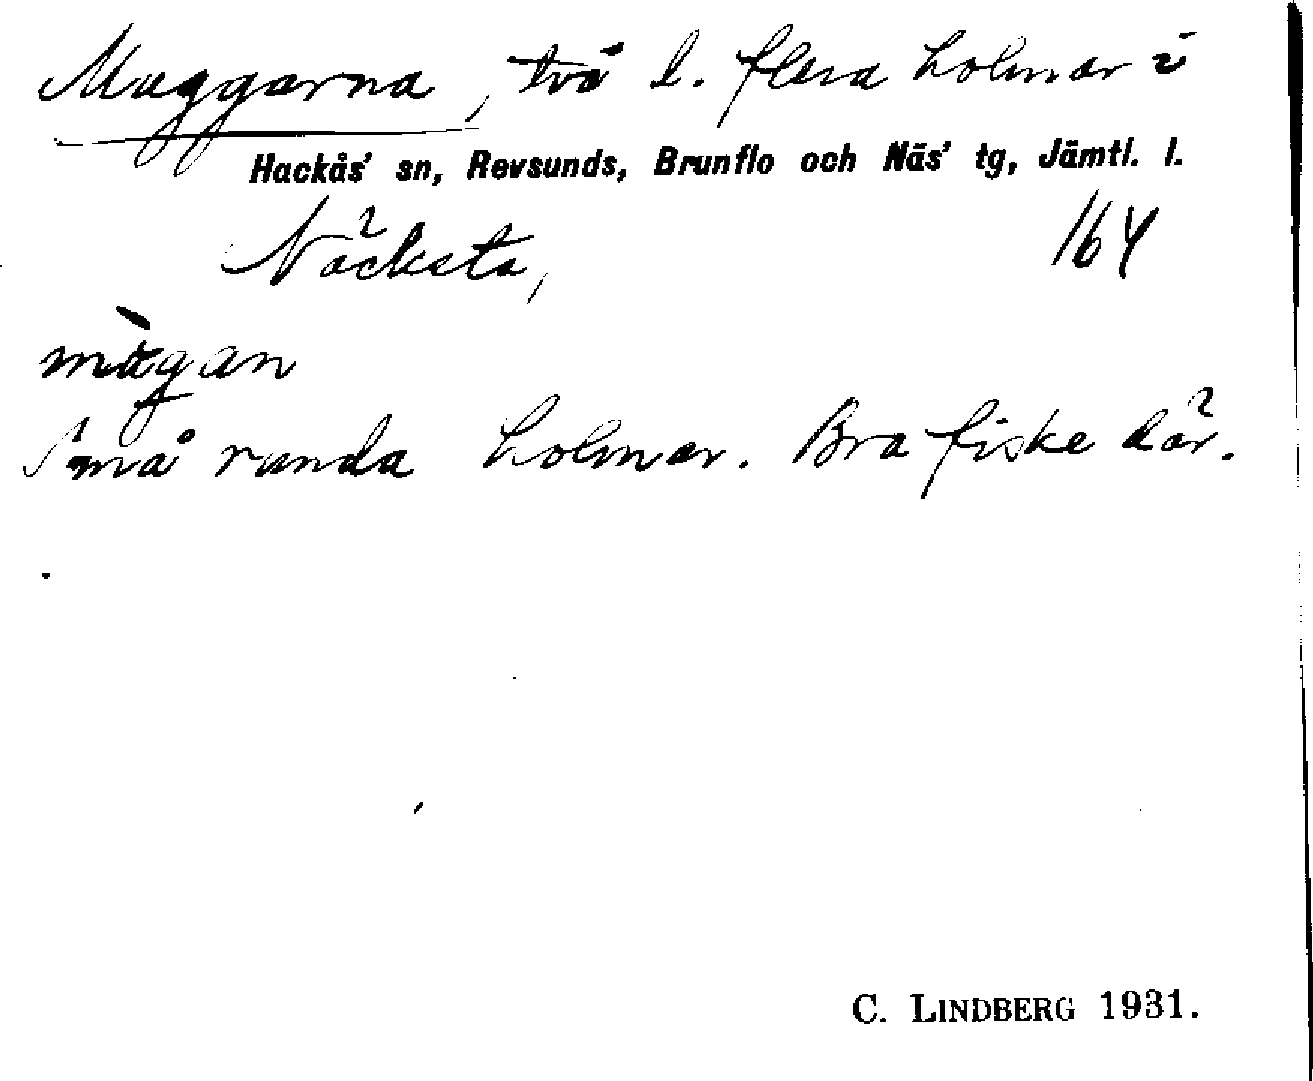 Muggarna, två l. flera holmar i
Hackås' sn, Revsunds, Brunflo och Näs' tg, Jämtl. l.
Näcksta, 164
mùgan
Små runda holmar. Bra fiske där.
C. LINDBERG 1931.